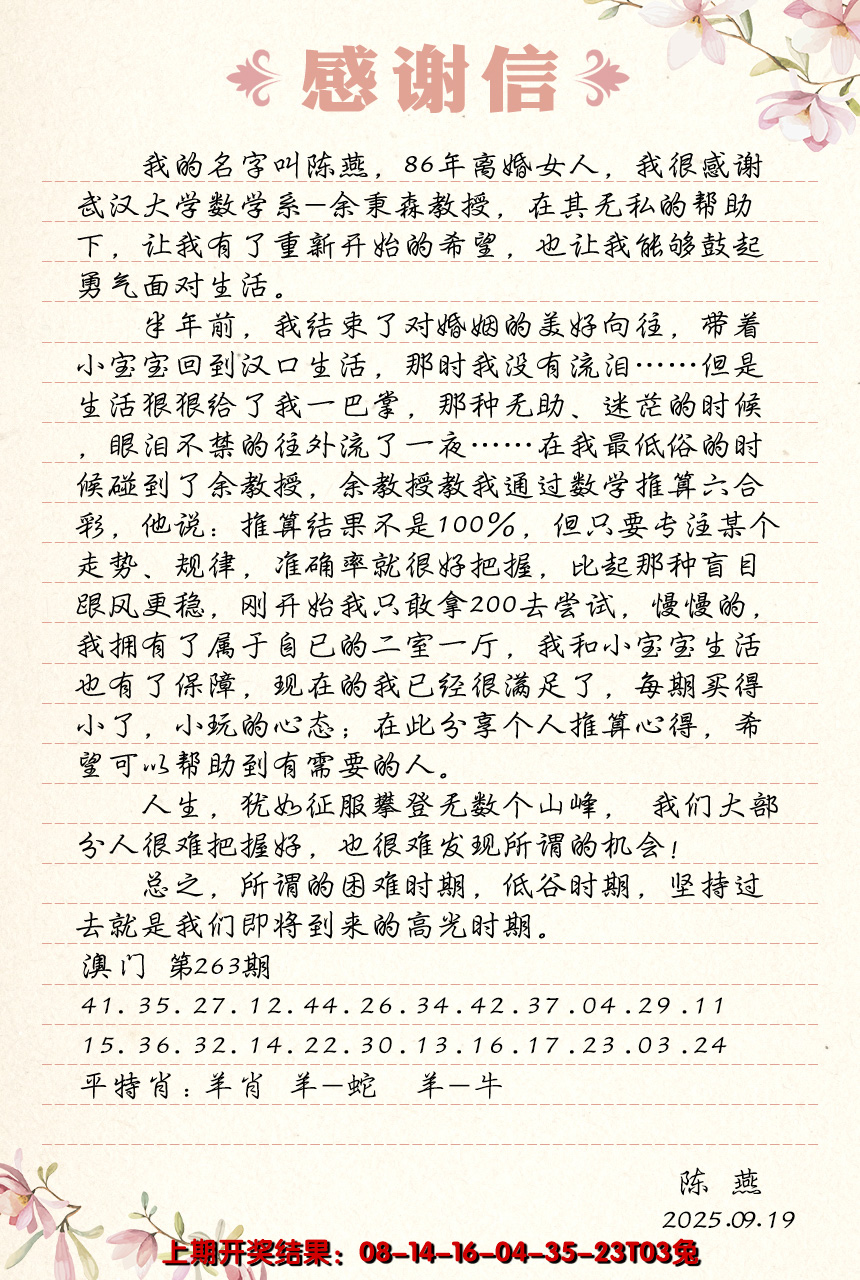 感谢信
我的名字叫陈燕，86年离婚女人，我很感谢
武汉大学数学系—余秉森教授，在其无私的帮助
下，让我有了重新开始的希望，也让我能够鼓起
勇气面对生活。
半年前，我结束了对婚姻的美好向往，带着
小宝宝回到汉口生活，那时我没有流泪……但是
生活狠狠给了我一巴掌，那种无助、迷茫的时候
，眼泪不禁的往外流了一夜……在我最低俗的时
候碰到了余教授，余教授教我通过数学推算六合
彩，他说：推算结果不是100%，但只要专注某个
走势、规律，准确率就很好把握，比起那种盲目
跟风更稳，刚开始我只敢拿200去尝试，慢慢的，
我拥有了属于自已的二室一厅，我和小宝宝生活
也有了保障，现在的我已经很满足了，每期买得
小了，小玩的心态；在此分享个人推算心得，希
望可以帮助到有需要的人。
人生，犹如征服攀登无数个山峰， 我们大部
分人很难把握好，也很难发现所谓的机会！
总之，所谓的困难时期，低谷时期，坚持过
去就是我们即将到来的高光时期。
澳门 第263期
41.35.27.12.44.26.34.42.37.04.29.11
15.36.32.14.22.30.13.16.17.23.03.24
平特肖：羊肖 羊—蛇 羊—牛
陈 燕
2025.09.19
上期开奖结果：08-14-16-04-35-23T03兔